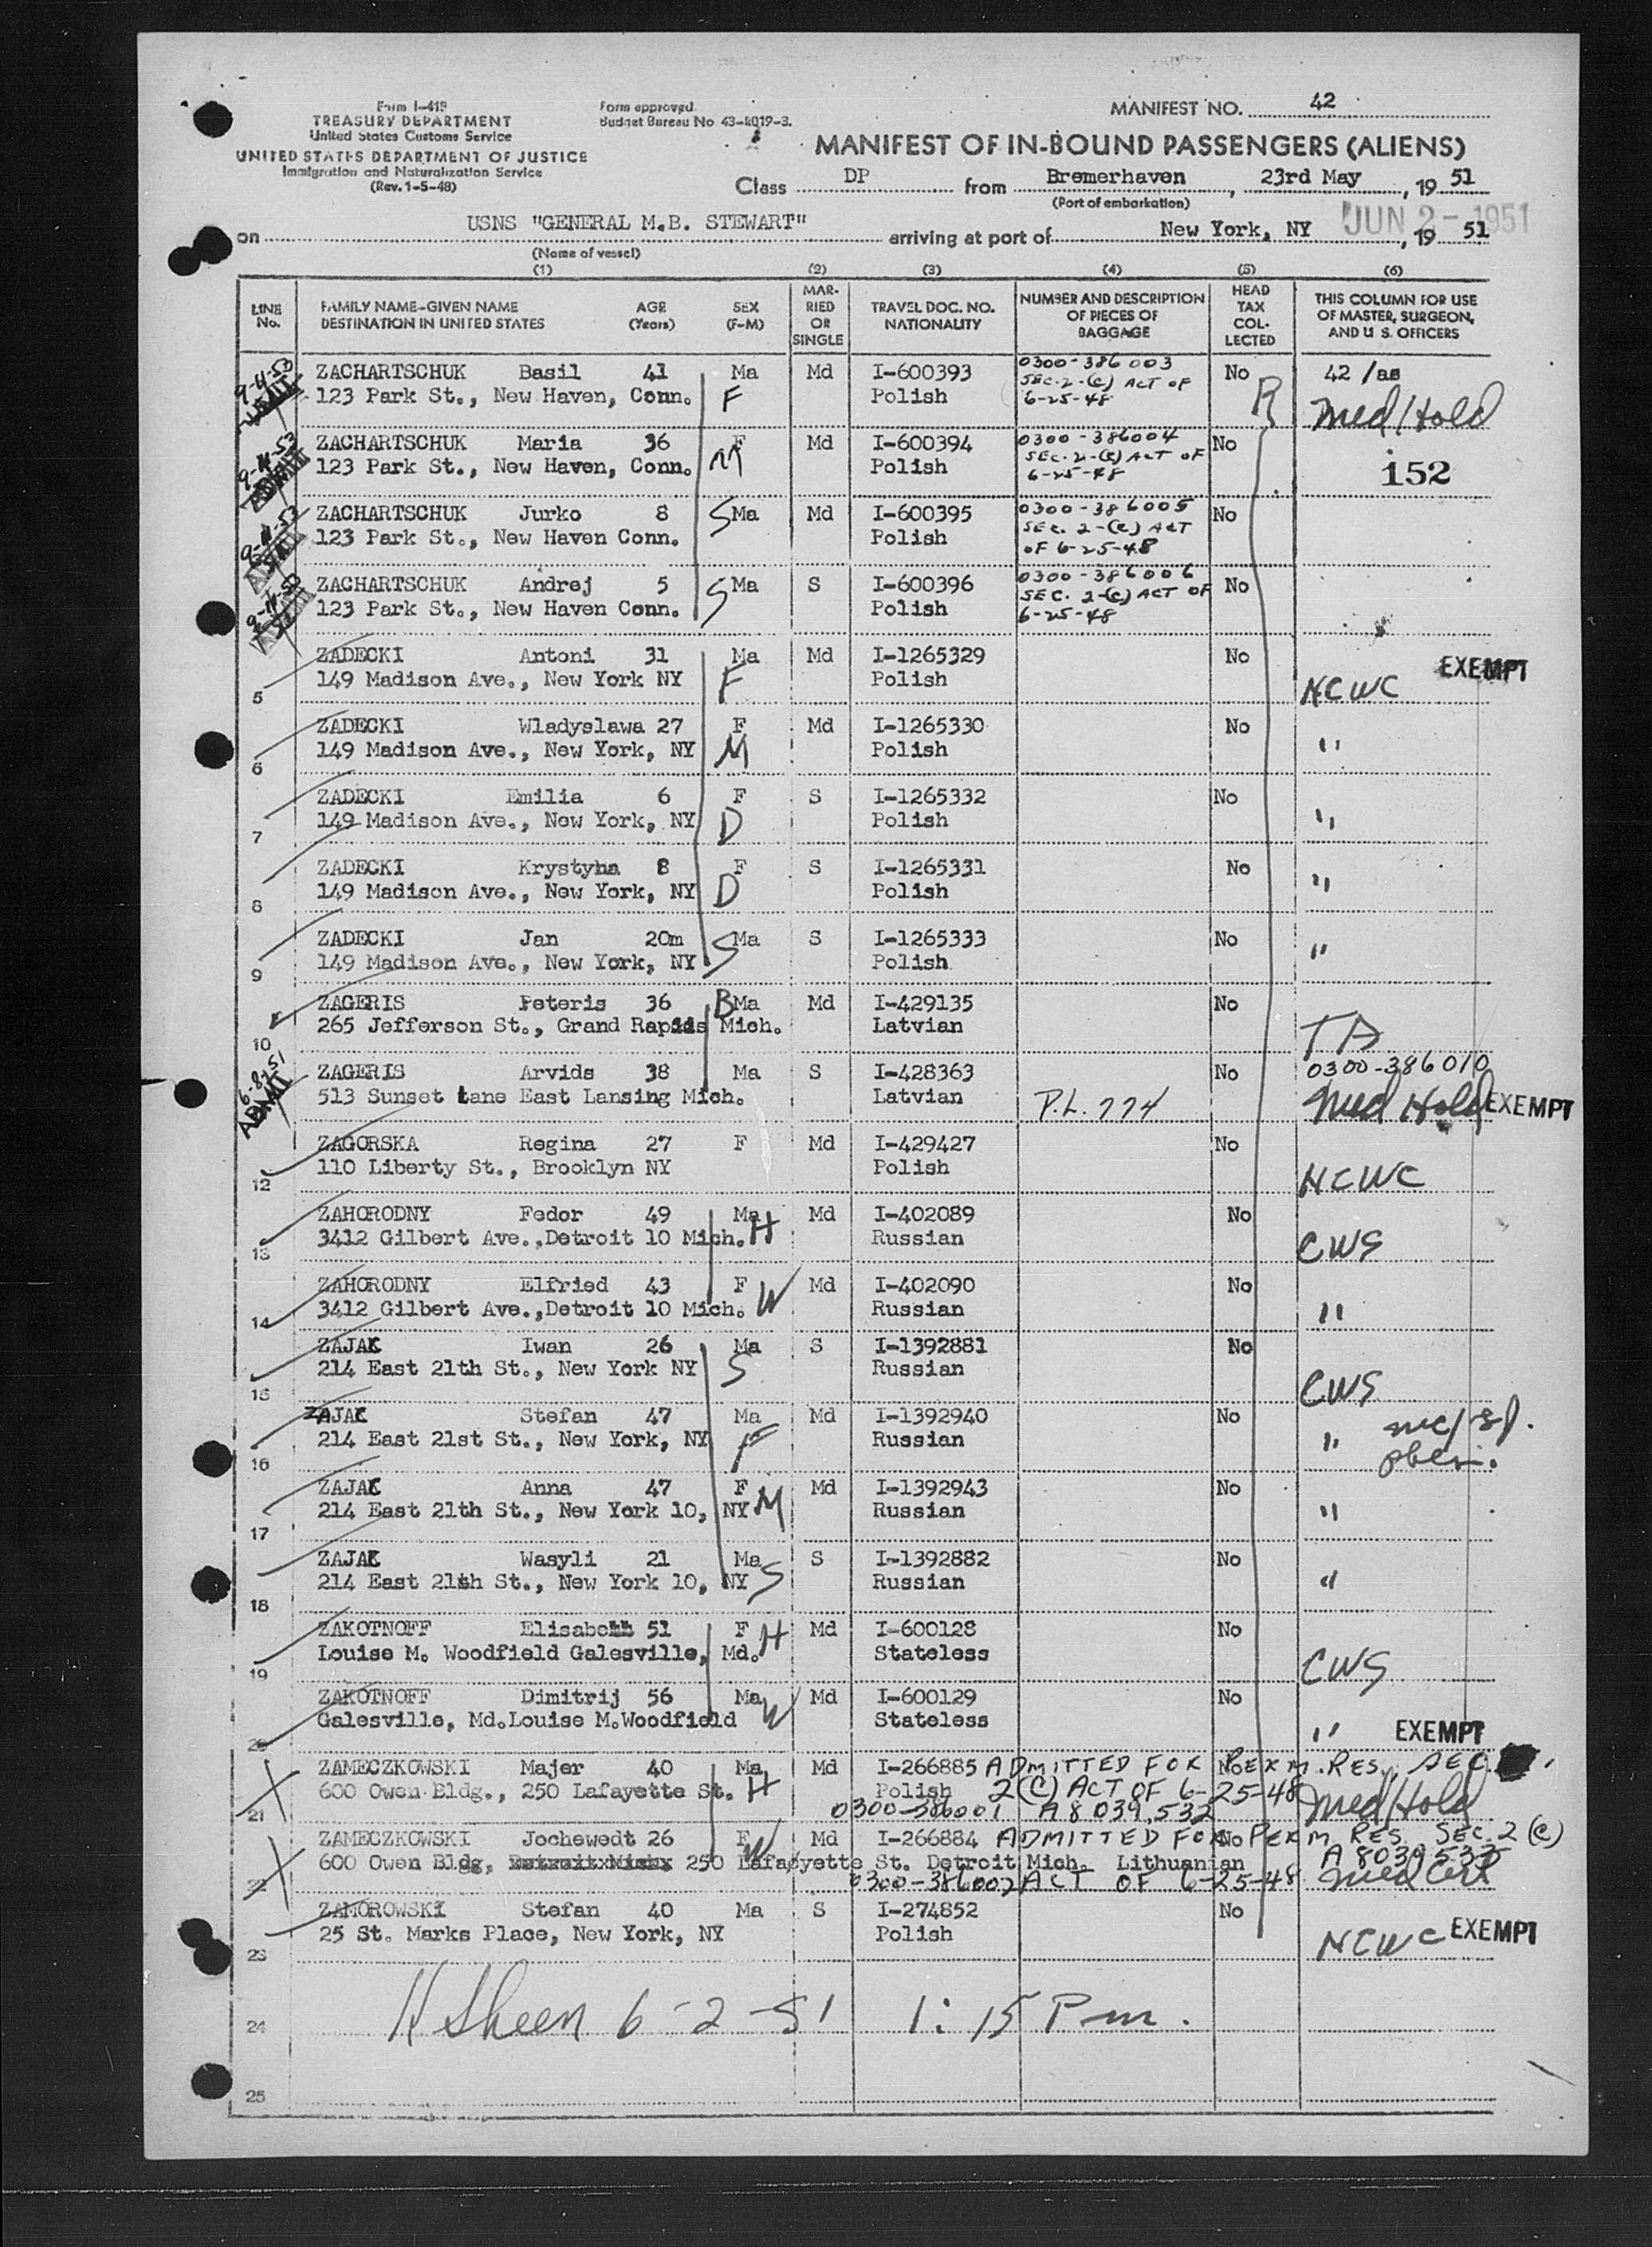 Form I-419
TREASURY DEPARTMENT
United States Customs Service
UNITED STATES DEPARTMENT OF JUSTICE
Immigration and Naturalization Service
(Rev. 1-5-48)
Form approved.
Budget Bureau No. 43-R019-3.
MANIFEST NO. 42
MANIFEST OF IN-BOUND PASSENGERS (ALIENS)
Class DP from Bremerhaven, 23rd May, 1951
(Port of embarkation)
on USNS "GENERAL M.B. STEWART" arriving at port of New York, NY JUN 2-1951, 1951
(Name of vessel)
(1) (2) (3) (4) (5) (6)
LINE No. FAMILY NAME-GIVEN NAME DESTINATION IN UNITED STATES AGE (Years) SEX (F-M) MARRIED OR SINGLE TRAVEL DOC. NO. NATIONALITY NUMBER AND DESCRIPTION OF PIECES OF BAGGAGE HEAD TAX COLLECTED THIS COLUMN FOR USE OF MASTER, SURGEON, AND U S. OFFICERS
9-11-53 ADMIT ZACHARTSCHUK Basil 41 Ma Md I-600393 0300-386003 No 42 /as
123 Park St., New Haven, Conn. F Polish SEC. 2-(c) ACT OF 6-25-48 R Med/Hold
9-11-53 ADMIT ZACHARTSCHUK Maria 36 F Md I-600394 0300-386004 No
123 Park St., New Haven, Conn. M Polish SEC. 2-(c) ACT OF 6-25-48 152
9-11-53 ADMIT ZACHARTSCHUK Jurko 8 S Ma Md I-600395 0300-386005 No
123 Park St., New Haven Conn. Polish SEC. 2-(c) ACT OF 6-25-48
9-11-53 ADMIT ZACHARTSCHUK Andrej 5 S Ma S I-600396 0300-386006 No
123 Park St., New Haven Conn. Polish SEC. 2-(c) ACT OF 6-25-48
ZADECKI Antoni 31 Ma Md I-1265329 No EXEMPT
5 149 Madison Ave., New York NY F Polish NCWC
ZADECKI Wladyslawa 27 F Md I-1265330 No
6 149 Madison Ave., New York, NY M Polish "
ZADECKI Emilia 6 F S I-1265332 No
7 149 Madison Ave., New York, NY D Polish "
ZADECKI Krystyna 8 F S I-1265331 No
8 149 Madison Ave., New York, NY D Polish "
ZADECKI Jan 20m S Ma S I-1265333 No
9 149 Madison Ave., New York, NY Polish "
ZAGERIS Peteris 36 B Ma Md I-429135 No
10 265 Jefferson St., Grand Rapids Mich. Latvian
6-8-51 ADMIT ZAGERIS Arvids 38 Ma S I-428363 No 0300-386010
513 Sunset Lane East Lansing Mich. Latvian P.L. 774 Med Hold EXEMPT
ZAGORSKA Regina 27 F Md I-429427 No
12 110 Liberty St., Brooklyn NY Polish NCWC
ZAHORODNY Fedor 49 Ma H Md I-402089 No
13 3412 Gilbert Ave.,Detroit 10 Mich. Russian CWS
ZAHORODNY Elfried 43 F W Md I-402090 No
14 3412 Gilbert Ave.,Detroit 10 Mich. Russian "
ZAJAC Iwan 26 Ma S I-1392881 No
15 214 East 21th St., New York NY S Russian CWS
ZAJAC Stefan 47 Ma Md I-1392940 No
16 214 East 21st St., New York, NY F Russian "
ZAJAC Anna 47 F M Md I-1392943 No
17 214 East 21th St., New York 10, NY Russian "
ZAJAC Wasyli 21 Ma S I-1392882 No
18 214 East 21th St., New York 10, NY S Russian "
ZAKOTNOFF Elisabeth 51 F H Md I-600128 No
19 Louise M. Woodfield Galesville, Md. Stateless CWS
ZAKOTNOFF Dimitrij 56 Ma W Md I-600129 No
20 Galesville, Md.Louise M.Woodfield Stateless " EXEMPT
ZAMECZKOWSKI Majer 40 Ma H Md I-266885 ADMITTED FOR No PERM. RES. SEC.
600 Owen Bldg., 250 Lafayette St. Polish 2(C) ACT OF 6-25-48 Med/Hold
21 0300-386001 A8 039,532
ZAMECZKOWSKI Jochewedt 26 F W Md I-266884 ADMITTED FOR No PERM RES. SEC. 2 (C)
600 Owen Bldg, 250 Lafayette St. Detroit Mich. Lithuanian A 8039533
22 0300-386002 ACT OF 6-25-48 Med Cert
ZAMOROWSKI Stefan 40 Ma S I-274852 No
23 25 St. Marks Place, New York, NY Polish NCWC EXEMPT
24 H Sheen 6-2-51 1:15 Pm.
25